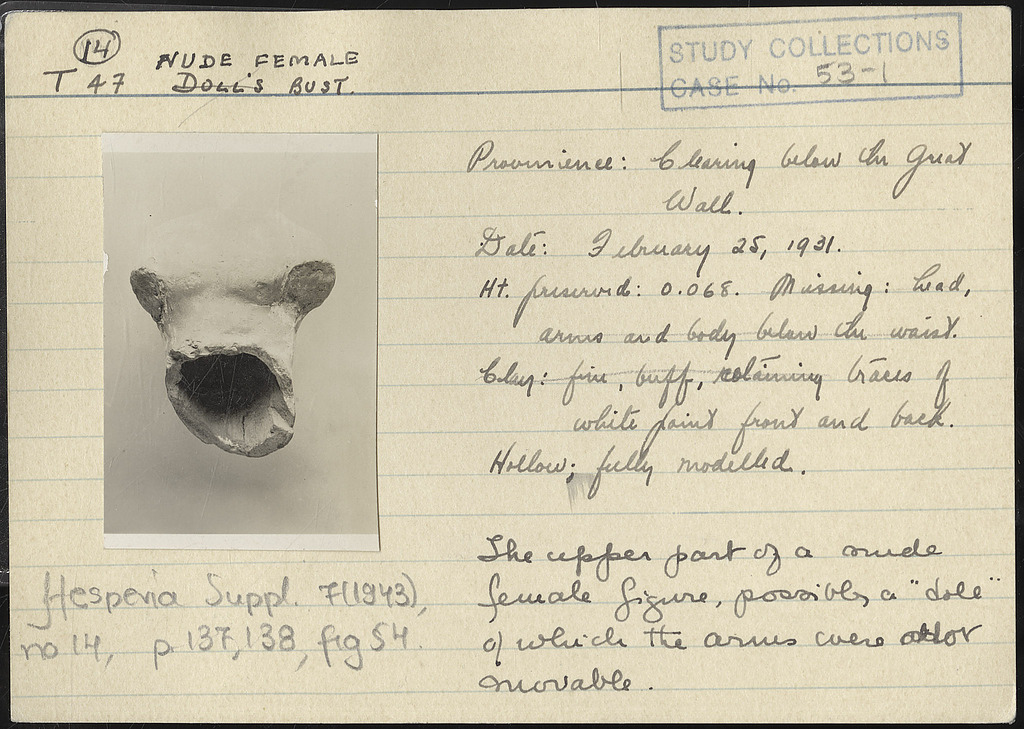 14
T 47 NUDE FEMALE
DOLL'S BUST.
STUDY COLLECTIONS
CASE No. 53-1
Provinience: Clearing below the Great
Wall.
Date: February 25, 1931.
Ht. preserved: 0.068. Missing: head,
arms and body below the waist.
Clay: fine, buff, retaining traces of
white paint front and back.
Hollow; fully modelled.
The upper part of a nude
female figure, possibly a "dole"
of which the arms were
movable.
Hesperia Suppl. 7(1943),
no 14, p. 137, 138, fig 54.